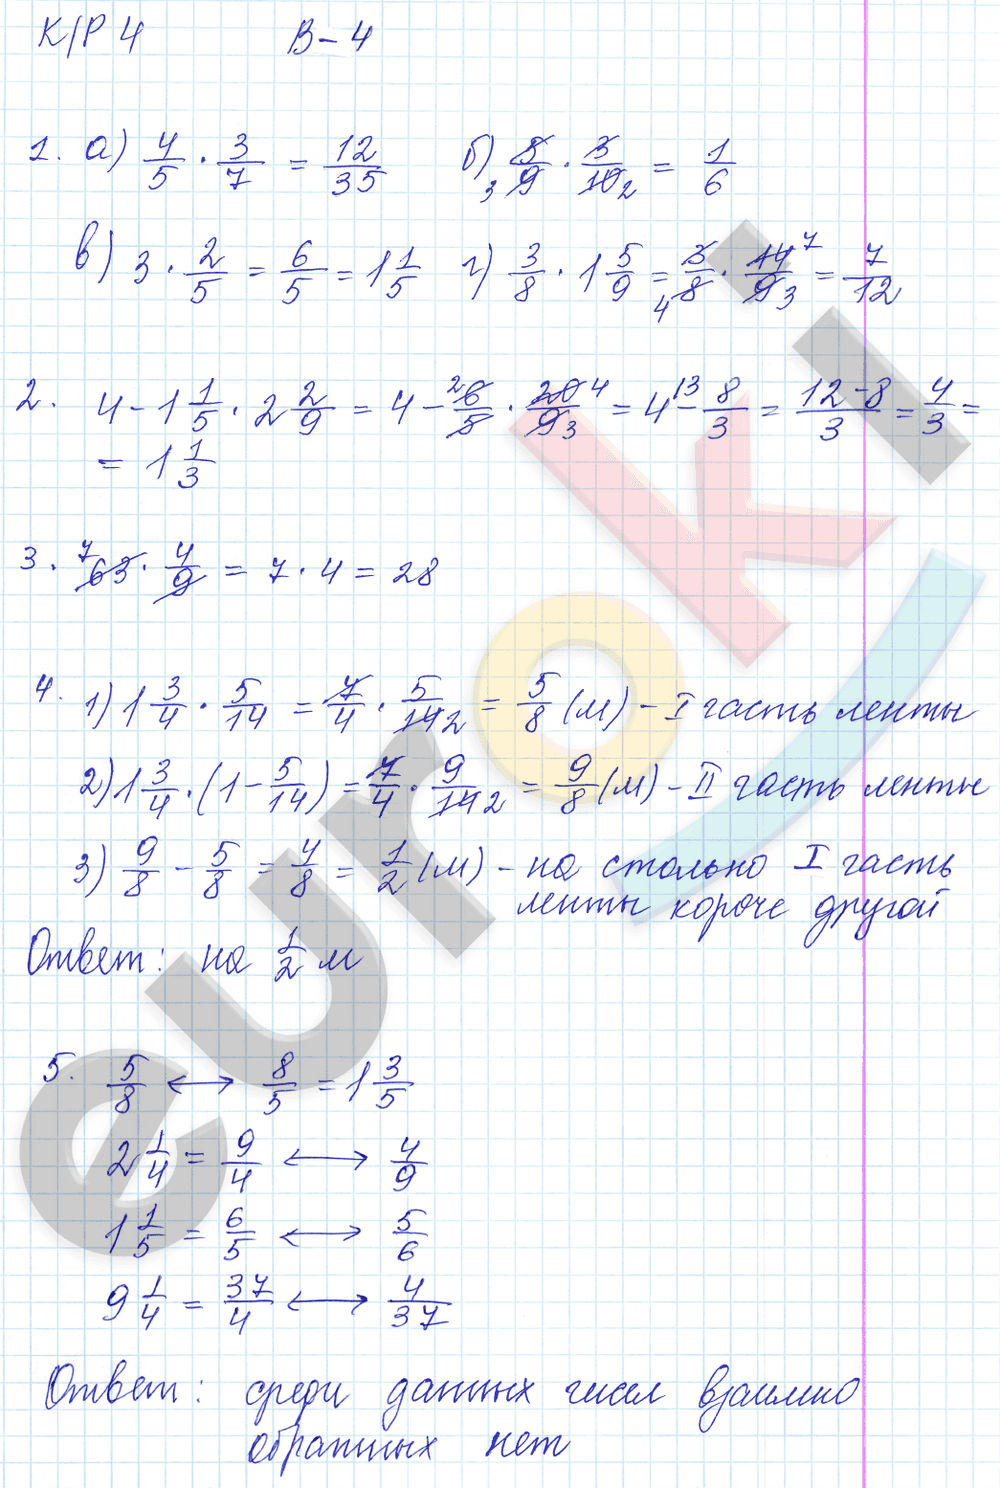 К/Р 4 В-4
1. а) 4/5 · 3/7 = 12/35 б) 5/9 · 3/10 = 1/6
3 2
в) 3 · 2/5 = 6/5 = 1 1/5 г) 3/8 · 1 5/9 = 3/8 · 14/9 = 7/12
4 7 3
2. 4 - 1 1/5 · 2 2/9 = 4 - 6/5 · 20/9 = 4 - 8/3 = 12-8/3 = 4/3 =
2 4 3 13
= 1 1/3
3. 63 · 4/9 = 7 · 4 = 28
7
4. 1) 1 3/4 · 5/14 = 7/4 · 5/14 = 5/8 (м) - I часть ленты
2
2) 1 3/4 · (1 - 5/14) = 7/4 · 9/14 = 9/8 (м) - II часть ленты
2
3) 9/8 - 5/8 = 4/8 = 1/2 (м) - на столько I часть
ленты короче другой
Ответ: на 1/2 м
5. 5/8 ↔ 8/5 = 1 3/5
2 1/4 = 9/4 ↔ 4/9
1 1/5 = 6/5 ↔ 5/6
9 1/4 = 37/4 ↔ 4/37
Ответ: среди данных чисел взаимно
обратных нет
euroki